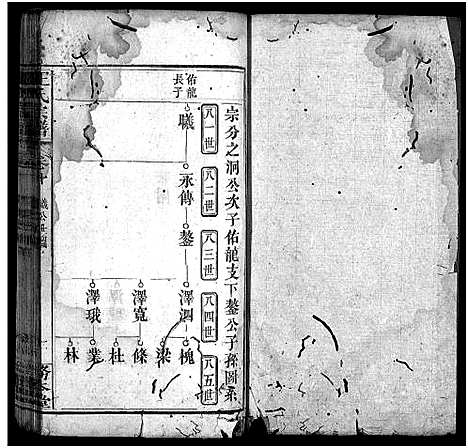 宗分之洞公次子佑龍支下鏊公子孫圖系
八一世
八二世
八三世
八四世
八五世
佑龍長子
曦
永傳
鏊
澤泗
澤寬
澤珴
槐
梁
條
杜
業
林
氏宗譜